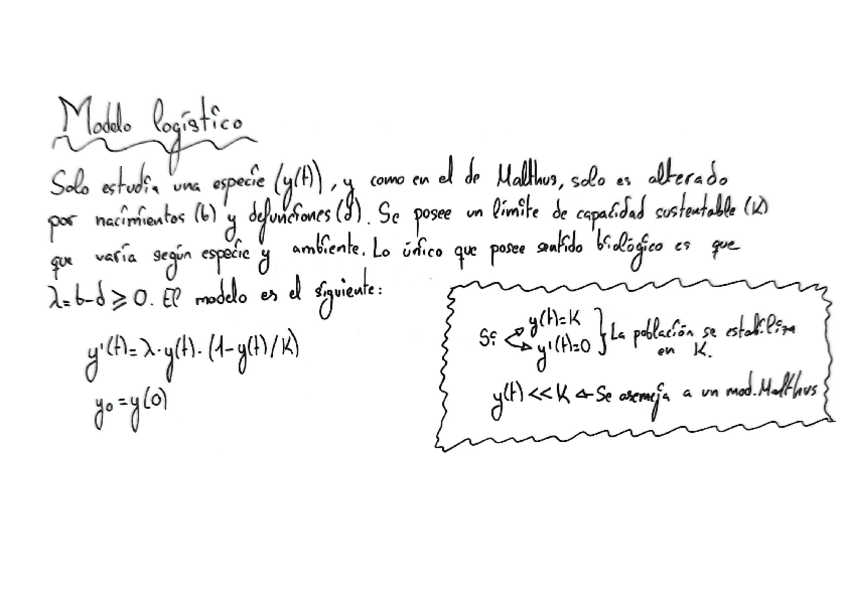 Modelo logístico
Solo estudia una especie (y(t)), y como en el de Malthus, solo es alterado
por nacimientos (b) y defunciones (d). Se posee un límite de capacidad sustentable (K)
que varía según especie y ambiente. Lo único que posee sentido biológico es que
λ=b-d ⩾ 0. El modelo es el siguiente:
y'(t)=λ·y(t)·(1-y(t)/K)
y₀=y(0)
Si y(t)=K
y'(t)=0 } La población se estabiliza
en K.
y(t) << K ← Se asemeja a un mod. Malthus